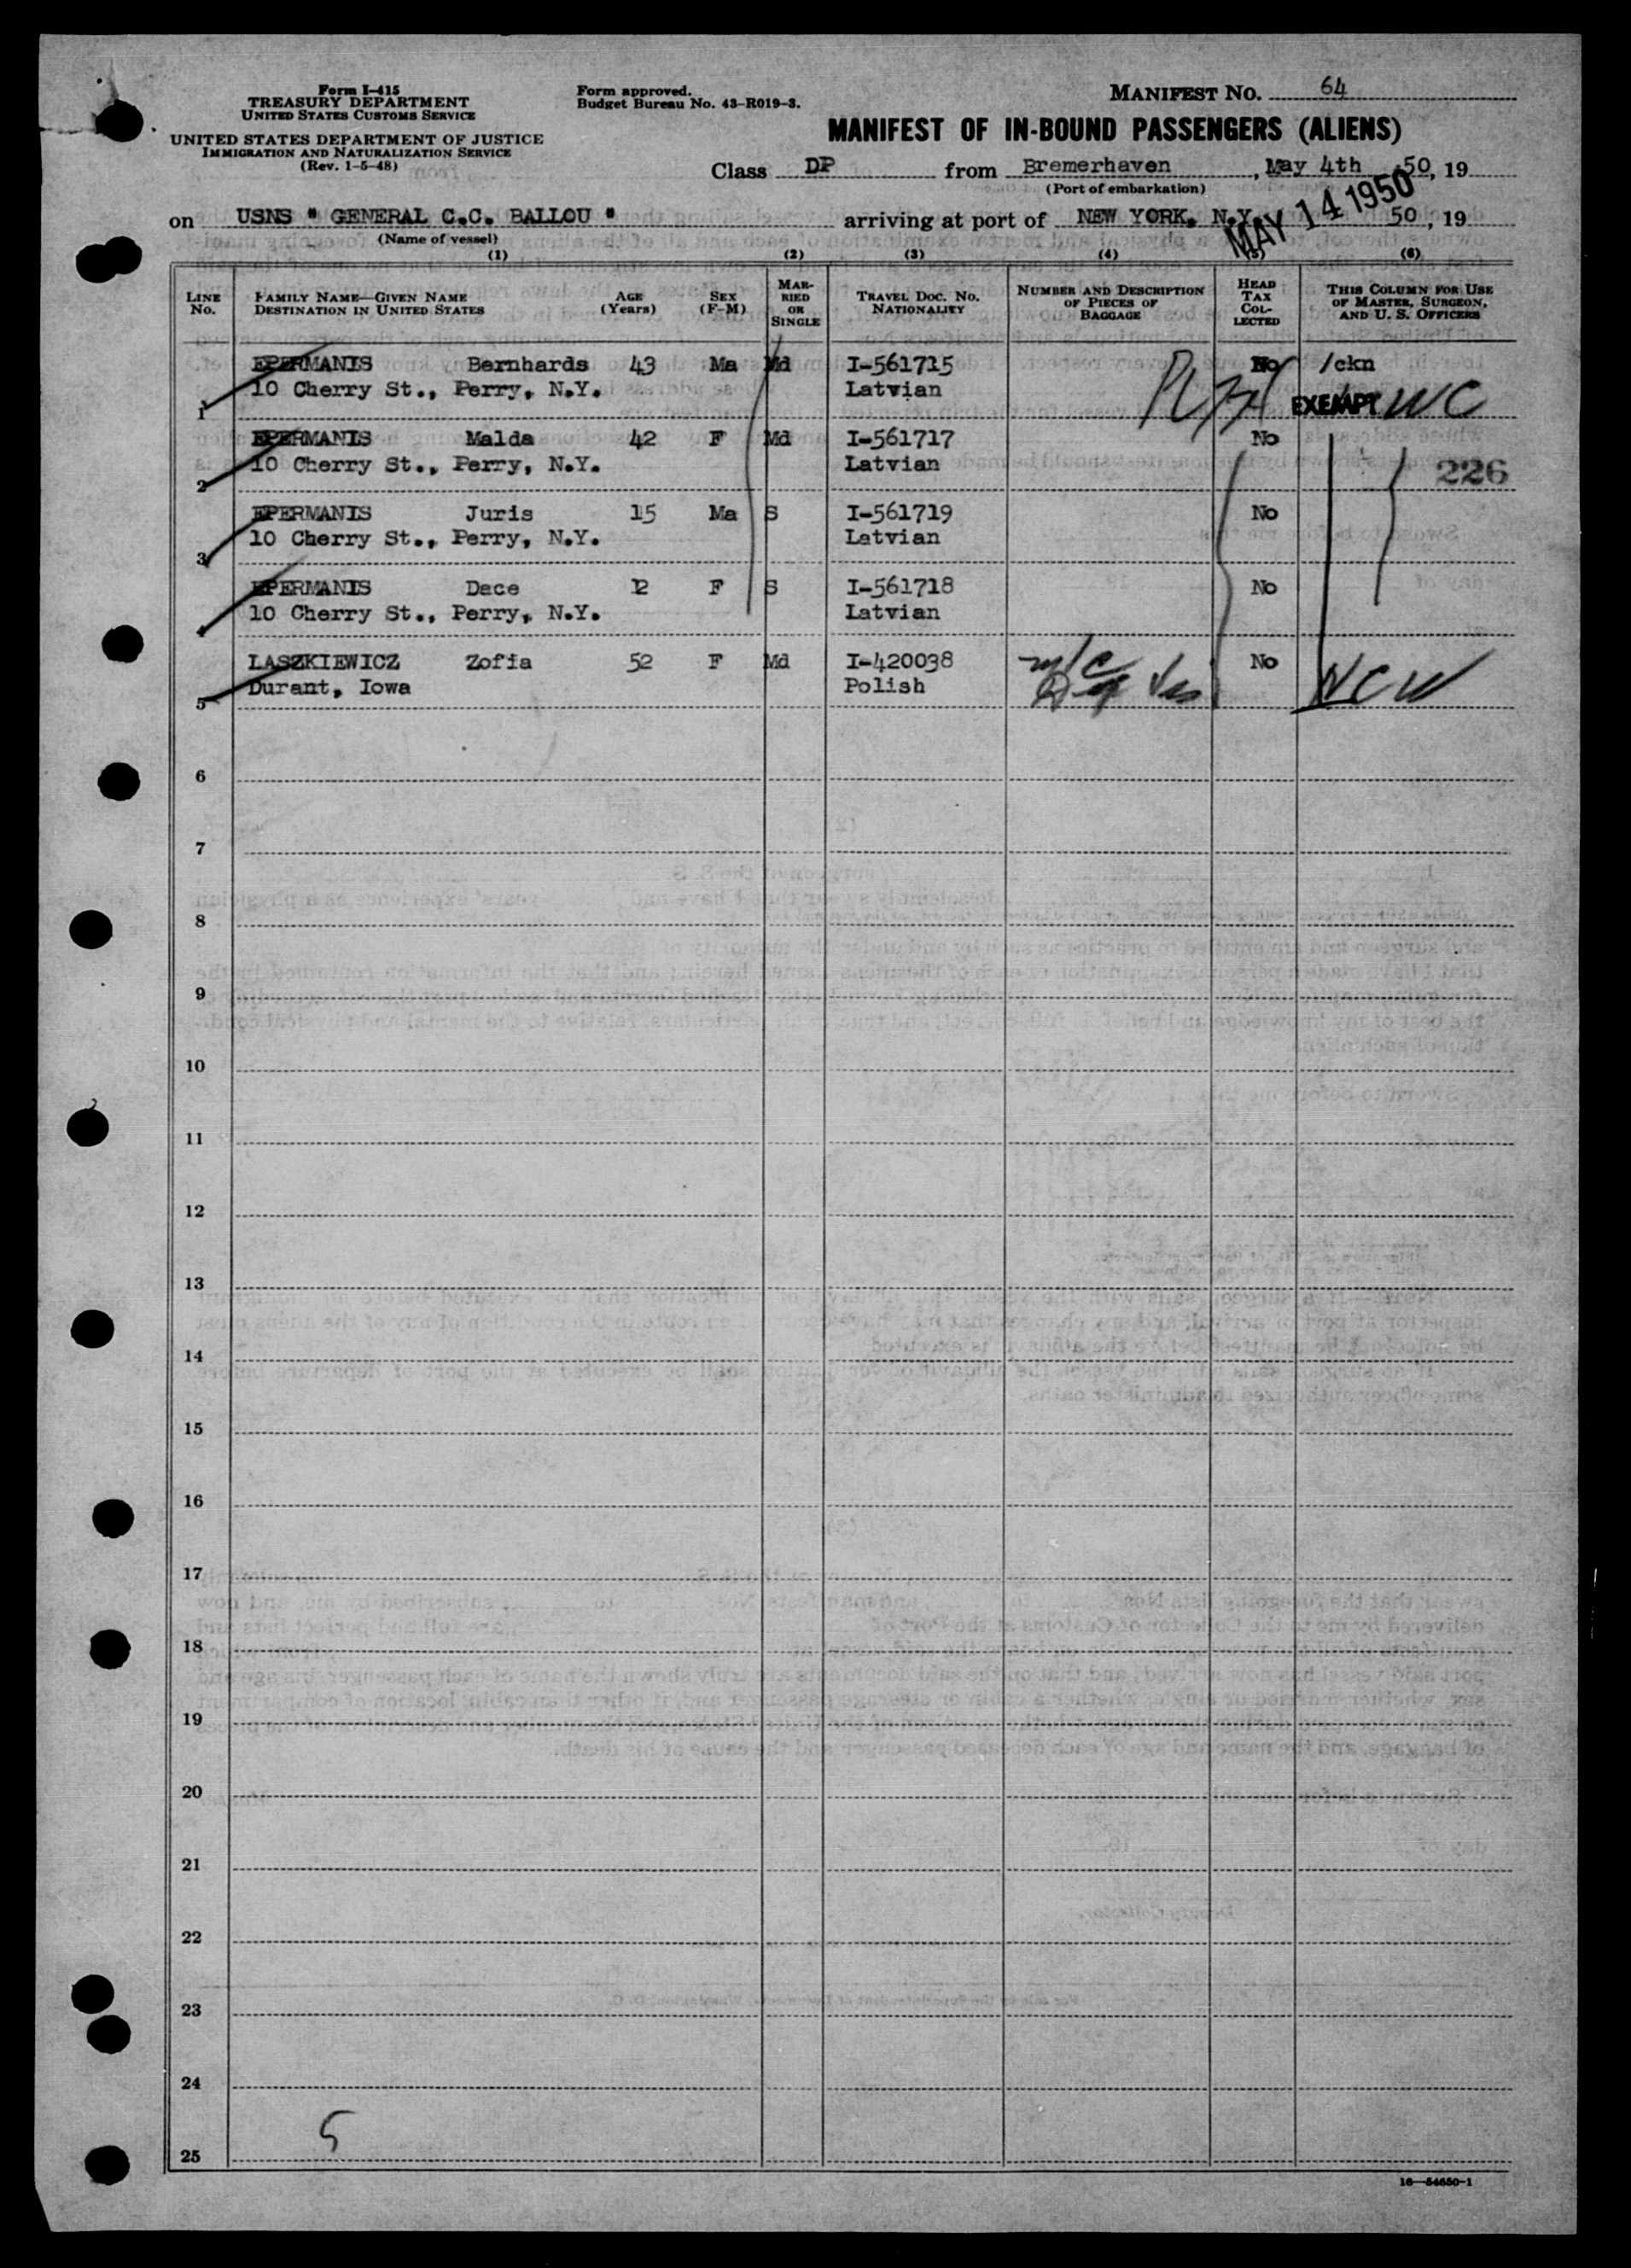 Form I-415
TREASURY DEPARTMENT
UNITED STATES CUSTOMS SERVICE
UNITED STATES DEPARTMENT OF JUSTICE
IMMIGRATION AND NATURALIZATION SERVICE
(Rev. 1-5-48)
Form approved.
Budget Bureau No. 43-R019-3.
MANIFEST NO. 64
MANIFEST OF IN-BOUND PASSENGERS (ALIENS)
Class DP from Bremerhaven, May 4th 50, 19
(Port of embarkation)
on USNS " GENERAL C.C. BALLOU " arriving at port of NEW YORK, N.Y. 50, 19
MAY 14 1950
(Name of vessel)
(1) (2) (3) (4) (5) (6)
LINE No. FAMILY NAME—GIVEN NAME DESTINATION IN UNITED STATES AGE (Years) SEX (F-M) MARRIED OR SINGLE TRAVEL DOC. NO. NATIONALITY NUMBER AND DESCRIPTION OF PIECES OF BAGGAGE HEAD TAX COLLECTED THIS COLUMN FOR USE OF MASTER, SURGEON, AND U. S. OFFICERS
EPERMANIS Bernhards 43 Ma Md I-561715 No /ckn
1 10 Cherry St., Perry, N.Y. Latvian EXEMPT WC
EPERMANIS Malda 42 F Md I-561717 No
2 10 Cherry St., Perry, N.Y. Latvian 226
EPERMANIS Juris 15 Ma S I-561719 No
3 10 Cherry St., Perry, N.Y. Latvian
EPERMANIS Dace 12 F S I-561718 No
4 10 Cherry St., Perry, N.Y. Latvian
LASZKIEWICZ Zofia 52 F Md I-420038 No
5 Durant, Iowa Polish NCW
6
7
8
9
10
11
12
13
14
15
16
17
18
19
20
21
22
23
24
5
25
16—54650-1